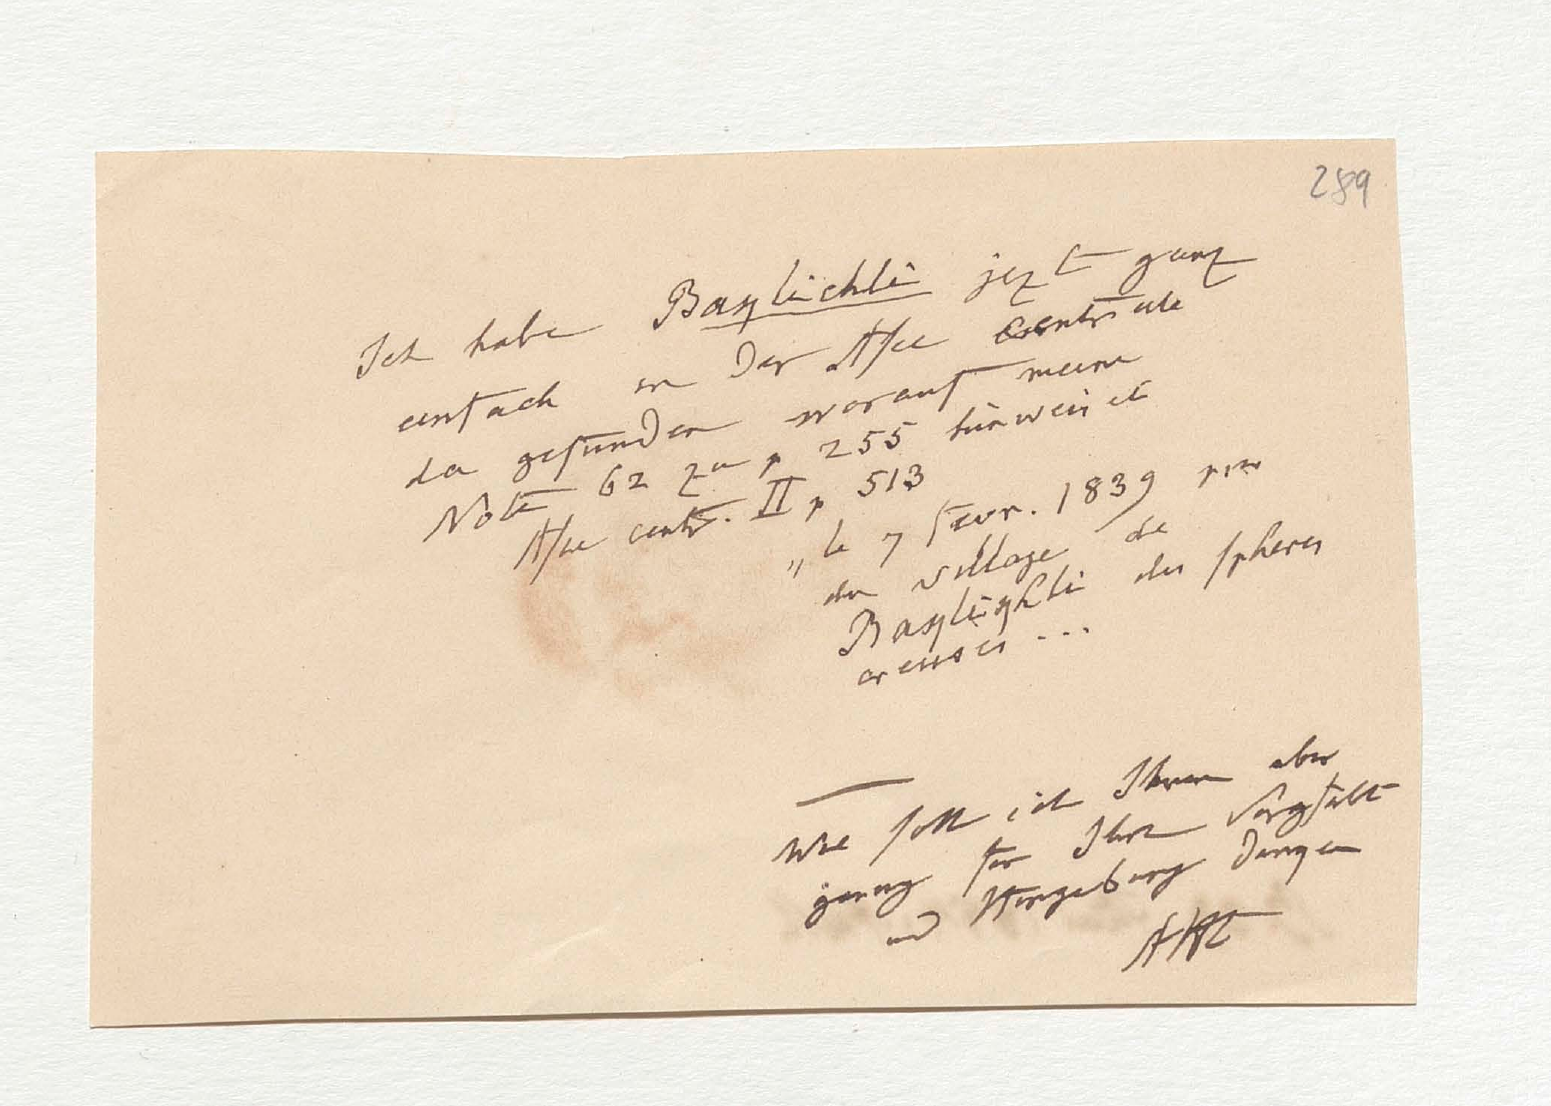 289
Ich habe Baqlichli jezt ganz
einfach in der Asie centrale
da gefunden worauf meine
Note 62 zu p 255 hinweiset
Asie centr. II p 513
„le 7 fevr. 1839 près
du village de
Baqlichli des spheres
creuses ...
Wie soll ich Ihnen aber
genug für Ihre Sorgfalt
und Hingebung danken
AHt